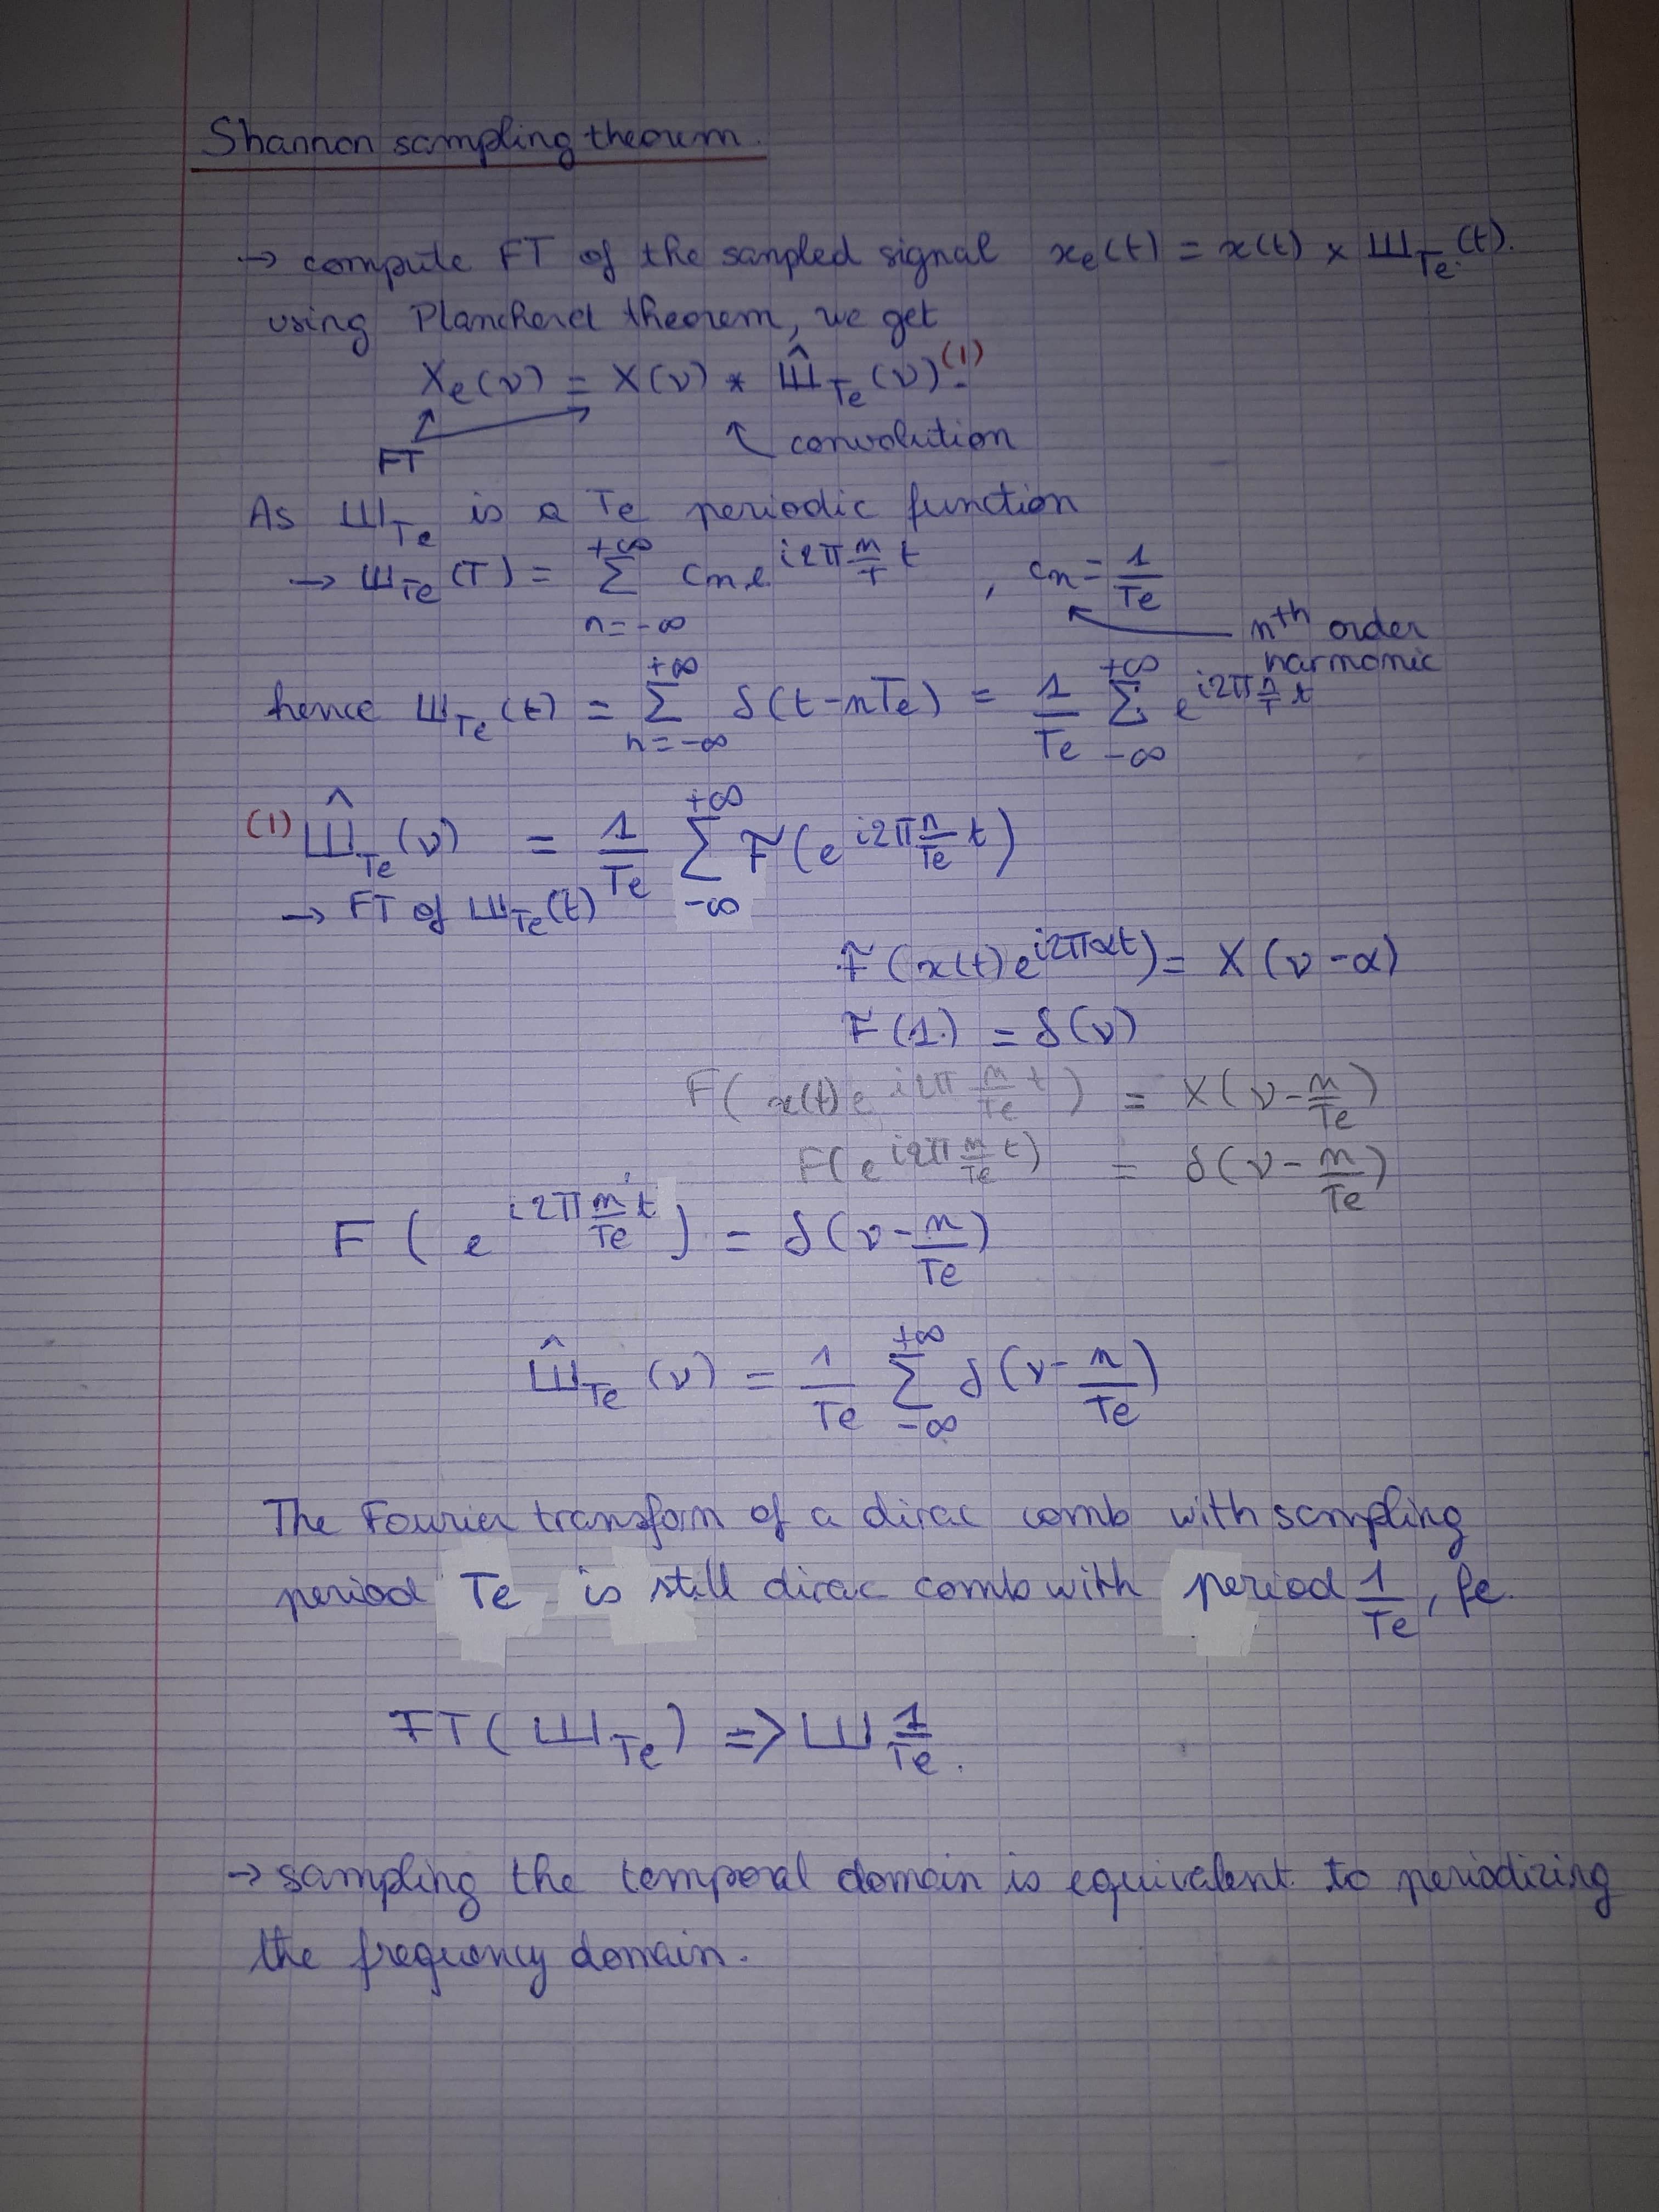 Shannon sampling theorem.
→ compute FT of the sampled signal xe(t) = x(t) × Ш_Te(t).
using Plancherel theorem, we get
Xe(ν) = X(ν) * Ш̂_Te(ν). (1)
FT ↖ convolution
As Ш_Te is a Te periodic function
→ Ш_Te(T) = Σ_{n=-∞}^{+∞} cn e^{i2π n/T t} , cn = 1/Te
nth order
harmonic
hence Ш_Te(t) = Σ_{n=-∞}^{+∞} δ(t-nTe) = 1/Te Σ_{-∞}^{+∞} e^{i2π n/T t}
(1) Ш̂_Te(ν) = 1/Te Σ_{-∞}^{+∞} F(e^{i2π n/Te t})
→ FT of Ш_Te(t)
F(x(t)e^{i2παt}) = X(ν-α)
F(1) = δ(ν)
F(x(t)e^{i2π n/Te t}) = X(ν-n/Te)
F(e^{i2π n/Te t}) = δ(ν-n/Te)
F(e^{i2π n/Te t}) = δ(ν-n/Te)
Ш̂_Te(ν) = 1/Te Σ_{-∞}^{+∞} δ(ν-n/Te)
The Fourier transform of a dirac comb with sampling
period Te is still dirac comb with period 1/Te, fe.
FT(Ш_Te) => Ш 1/Te.
→ sampling the temporal domain is equivalent to periodizing
the frequency domain.